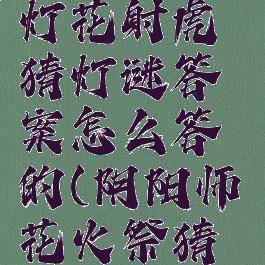 灯花射虎
猜灯谜答
案怎么答
的(阴阳师
花火祭猜